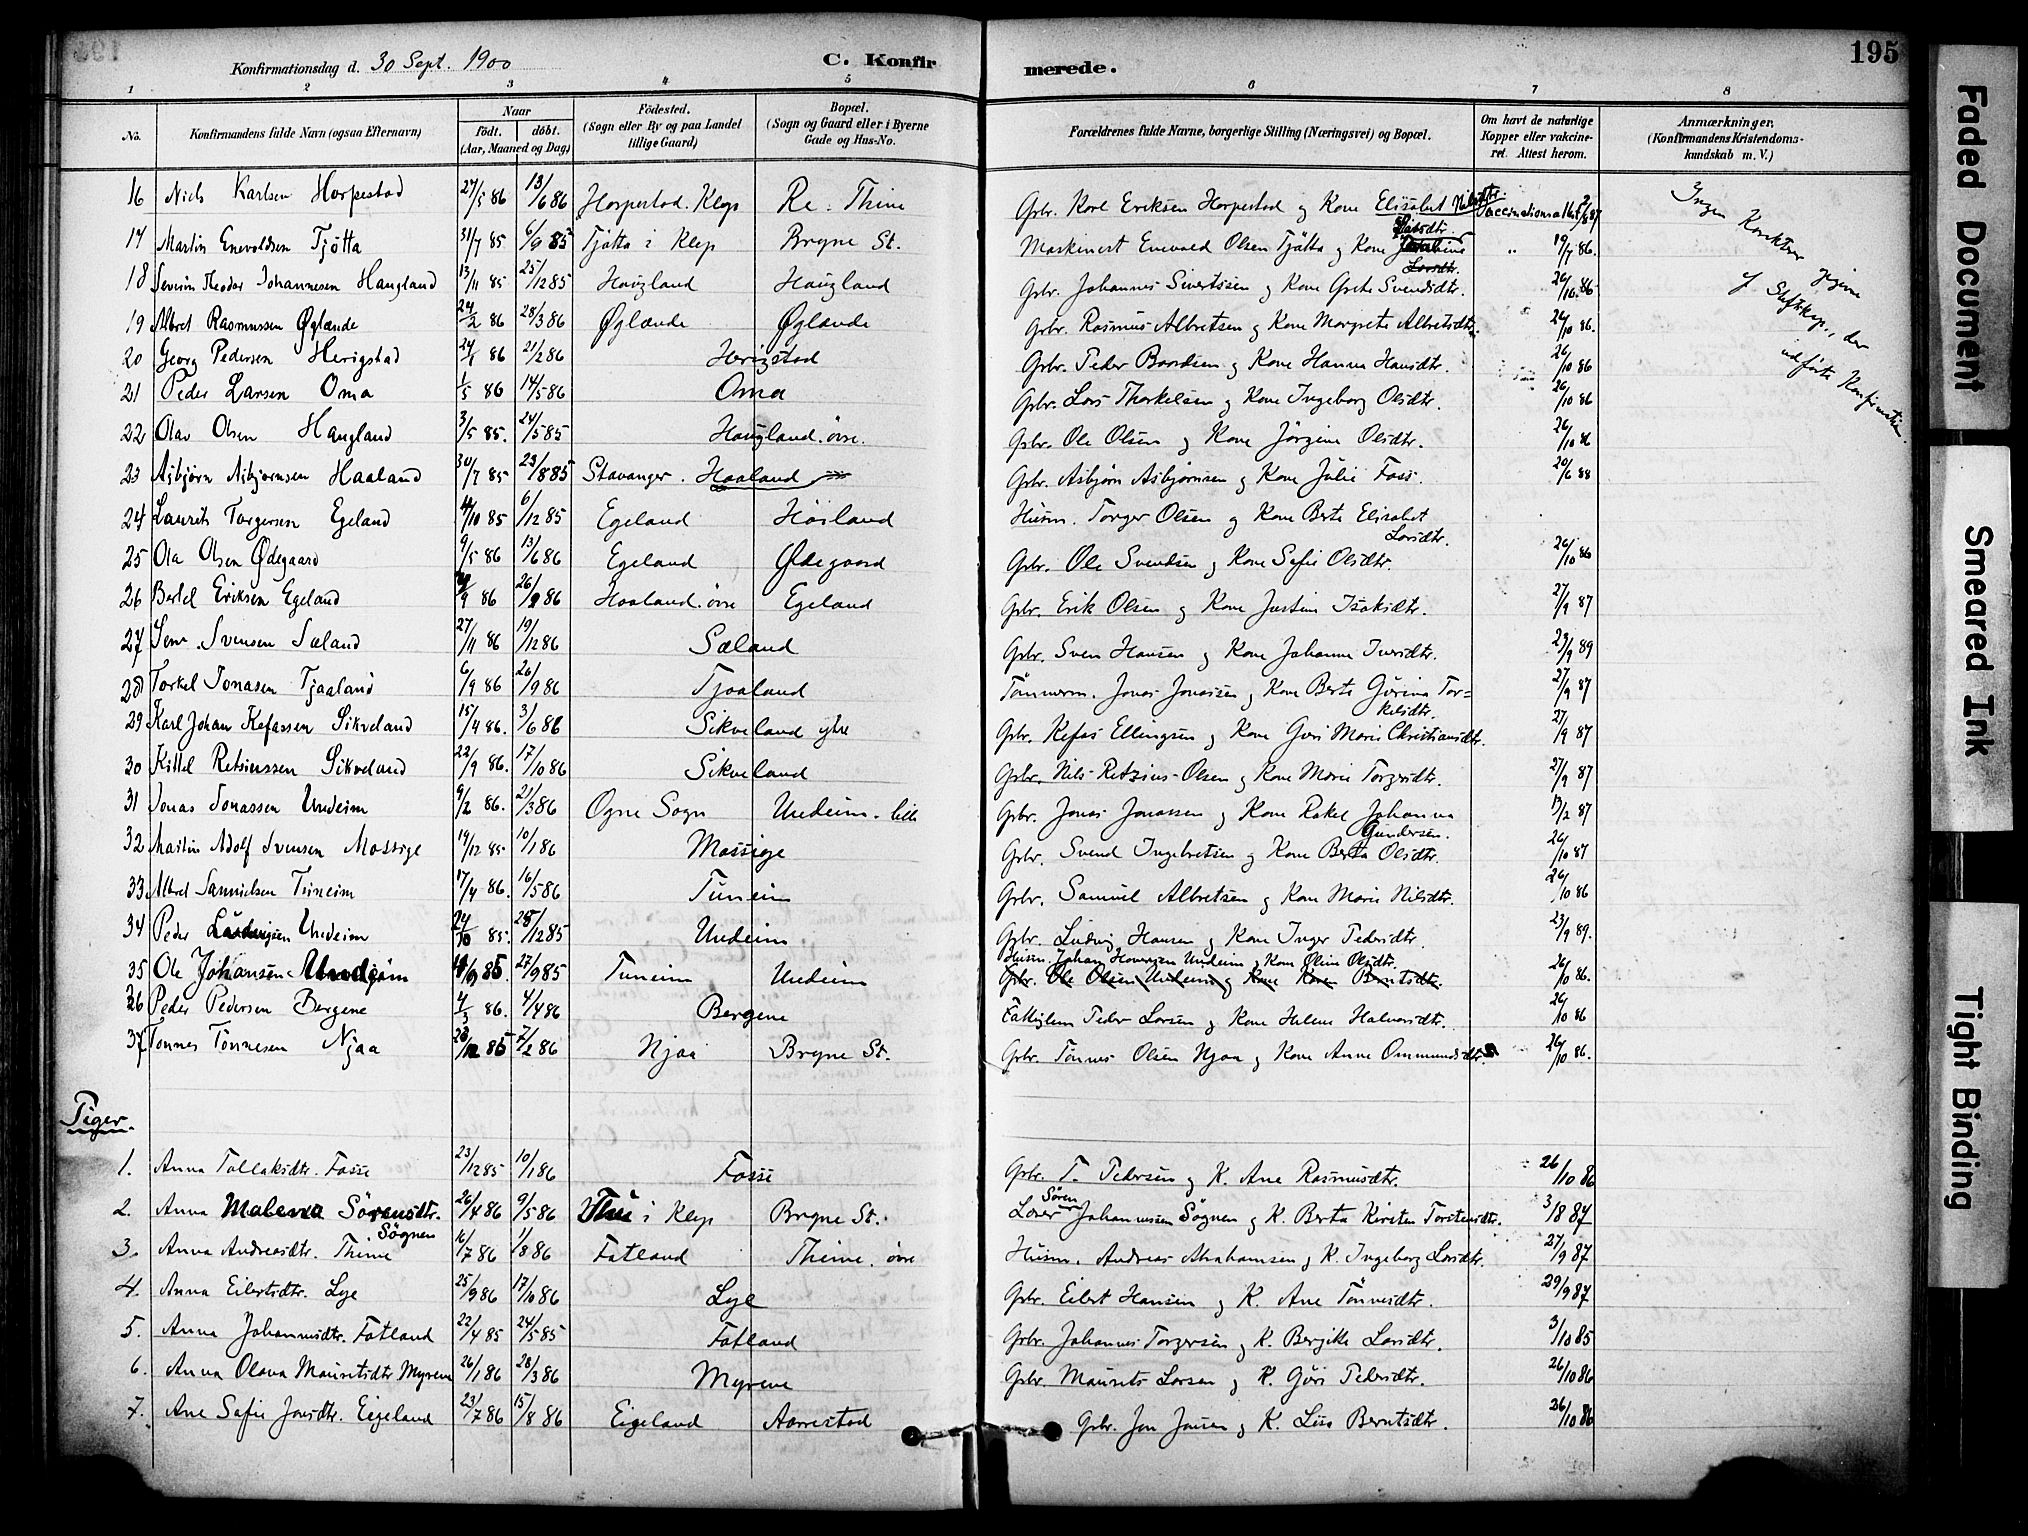 Konfirmationsdag d. 30 Sept. 1900 C. Konfirmerede. 195
1 2 3 4 5 6 7 8
No. Konfirmandens fulde Navn (ogsaa Efternavn) Naar födt. döbt. (Aar, Maaned og Dag) Födested. (Sogn eller By og paa Landet tillige Gaard) Bopæl. (Sogn og Gaard eller i Byerne Gade og Hus-No. Forældrenes fulde Navne, borgerlige Stilling (Næringsvei) og Bopæl. Om havt de naturlige Kopper eller vakcineret. Attest herom. Anmærkninger, (Konfirmandens Kristendomskundskab m. V.)
16 Niels Karlsen Horpestad 27/5 86 13/6 86 Horpestad. Klep Re. Thime Gbr. Karl Eriksen Horpestad og Kone Elisabet Nilsdtr. Vaccinationsattest
17 Martin Enevoldsen Tjötta 31/7 85 6/9 85 Tjötta i Klep Bryne St. Maskinist Enevald Olsen Tjötta og Kone " 19/7 86.
18 Severin Theodor Johannesen Haugland 13/11 85 25/12 85 Haugland Haugland Gbr. Johannes Sivertsen og Kone Grete Svendsdtr. 26/10 86
19 Albret Rasmussen Øglænde 24/2 86 28/3 86 Øglænde Øglænde Gbr. Rasmus Albretsen og Kone Margrete Albretsdtr. 26/10 86.
20 Georg Pedersen Herigstad 24/1 86 21/2 86 Herigstad Gbr. Peder Bardsen og Kone Hanna Hansdtr. 26/10 86
21 Peder Larsen Oma 1/5 86 14/5 86 Oma Gbr. Lars Thorkelsen og Kone Ingeborg Olsdtr. 26/10 86
22 Olav Olsen Haugland 3/5 85. 24/5 85 Haugland. övre. Gbr. Ole Olsen og Kone Jörgine Olsdtr. 26/10 86
23 Asbjörn Asbjörnsen Haaland 30/7 85 23/8 85 Stavanger. Haaland Gbr. Asbjörn Asbjörnsen og Kone Julie Foss. 20/6 88
24 Laurits Torgersen Egeland 4/10 85 6/12 85 Egeland Hösland Husm. Torger Olsen og Kone Berte Elisabet Larsdtr.
25 Ola Olsen Ødegaard 9/5 86 13/6 86 Egeland Ødegaard Gbr. Ole Svendsen og Kone Sofie Olsdtr. 26/10 86
26 Bertel Eriksen Egeland 86 26/9 86 Haaland. övre Egeland Gbr. Erik Olsen og Kone Justine Isaksdtr. 27/9 87
27 Svensen Sæland 27/11 86 19/12 86 Sæland Gbr. Sven Hansen og Kone Johanna Iversdtr. 23/9 89
28 Torkel Jonasen Tjaaland 6/9 86 26/9 86 Tjaaland Tömmerm. Jonas Jonassen og Kone Berte Gurina Torkelsdtr. 27/9 87
29 Karl Johan Kefassen Sikveland 15/4 86. 3/6 86 Sikveland ytre Gbr. Kefas Ellingsen og Kone Guri Marie Christiansdtr. 27/9 87
30 Kittel Retsiussen Sikveland 22/9 86. 17/10 86 Sikveland Gbr. Nils Retzius Olsen og Kone Marie Torgersdtr. 27/9 87
31 Jonas Jonassen Undeim 9/2 86. 21/3 86 Ogne Sogn Undeim. lille Gbr. Jonas Jonassen og Kone Rakel Johanna Gundersen. 17/2 87
32 Martin Adolf Svensen Mossige 19/12 85 10/1 86 Mossige Gbr. Svend Ingebretsen og Kone Berta Olsdtr. 26/10 87
33 Albret Samuelsen Tuneim 17/4 86. 16/5 86 Tuneim Gbr. Samuel Albretsen og Kone Marie Nilsdtr. 26/10 86
34 Peder Ludvigsen Undeim 24/10 85. 25/12 85 Undeim Gbr. Ludvig Hansen og Kone Inger Pedersdtr. 23/9 89.
35 Ole Johansen Undeim 85 27/9 85 Tuneim Undeim Husm. Johan Undeim og Kone Oline Olsdtr. 26/10 86.
Gbr. Ole Olsen Undeim og Kone Karen Berntsdtr.
36 Peder Pedersen Bergene 4/3 86. 4/4 86 Bergene Fattiglem Peder Larsen og Kone Helene Halvorsdtr. 26/10 86
37 Tönnes Tönnesen Njaa 28/12 85 7/2 86 Njaa Bryne St. Gbr. Tönnes Olsen Njaa og Kone Anne Ommundsdtr. 26/10 86.
Ingen Karakter gjeven af Stiftskap., der udførte Konfirmation.
Piger.
1. Anna Tollaksdtr. Fosse 23/12 85 10/1 86 Fosse Gbr. T. Pedersen og K. Ane Rasmusdtr. 26/10 86
2. Anna Malena Sörensdtr. Sögnen 26/4 86 9/5 86 Thu i Klep Bryne St. Lærer Sören Johannessen Sögnen og K. Berta Kirsten Torstensdtr. 3/8 87
3. Anna Andreasdtr. Thime 16/7 86 1/8 86 Fatland Thime. övre Husm. Andreas Abrahamsen og K. Ingeborg Larsdtr. 27/9 87
4. Anna Eilertsdtr. Lye 25/9 86 17/10 86 Lye Gbr. Eilert Hansen og K. Ane Tönnesdtr. 29/9 87
5. Anna Johannesdtr. Fatland 22/4 85 24/5 85 Fatland Gbr. Johannes Torgersen og K. Bergitte Larsdtr. 3/10 85
6. Anna Olava Mauritsdtr Myrene 26/1 86 28/3 86 Myrene Gbr. Maurits Larsen og K. Guri Pedersdtr. 26/10 86
7. Ane Sofie Jonsdtr. Eigeland 23/7 86 15/8 86 Eigeland Aarrestad Gbr. Jon Jonsen og K. Lisa Berntsdtr. 26/10 86
Faded Document
Smeared Ink
Tight Binding